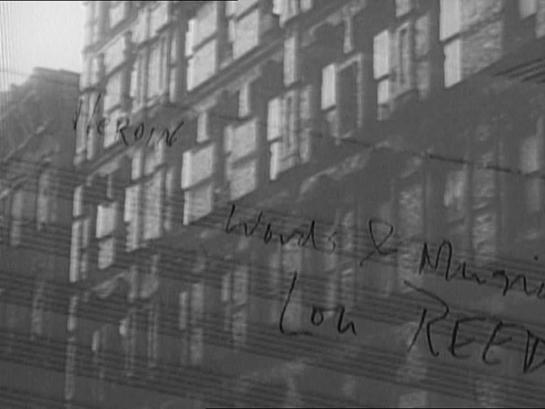 HEROIN
Words & Music
Lou REED